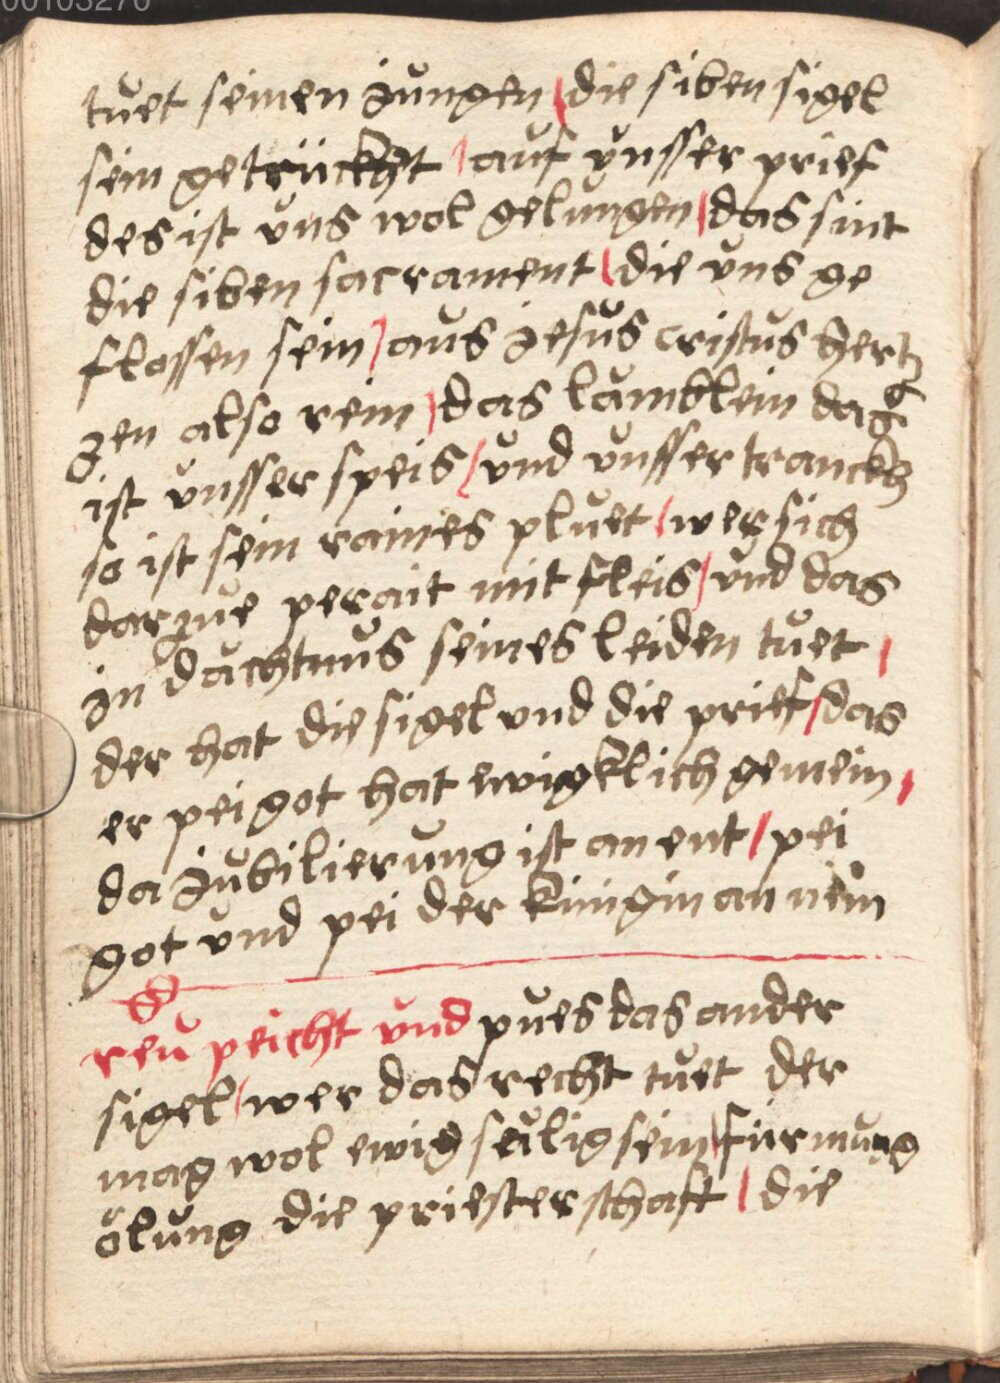 00103270
tuet seinen jungen / die siben sigel
sein getrückht / auf vnsser prief
des ist vns wol gelungen / das sint
die siben sacrament / die vns ge
flossen sein / aus jesus cristus hertz
zen also rein / das lämblein das
ist vnsser speis / vnd vnsser tranckh
so ist sein raines pluet / wer sich
darzue perait mit fleis / vnd das
in dächtnus seines leiden tuet /
der hat die sigel vnd die prief / das
er pei got hat ewigklich gemein /
da jubilierung ist an ent / pei
got vnd pei der künigin an nein
reu peicht vnd pues das ander
sigel / wer das recht tuet der
mag wol ewig sälig sein / fürmung
ölung die priesterschaft / die